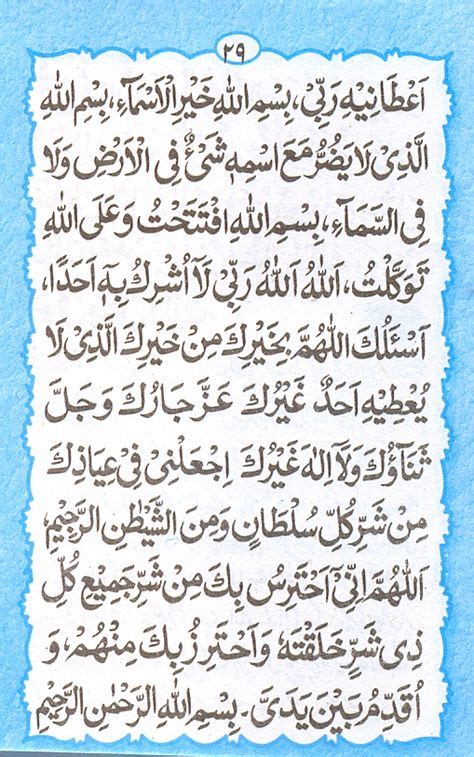 ٢٩
اَعْطَانِيْهِ رَبِّيْ، بِسْمِ اللهِ خَيْرِ الْاَسْمَآءِ، بِسْمِ اللهِ
الَّذِيْ لَا يَضُرُّ مَعَ اسْمِهٖ شَيْءٌ فِي الْاَرْضِ وَلَا
فِي السَّمَآءِ، بِسْمِ اللهِ افْتَتَحْتُ وَعَلَى اللهِ
تَوَكَّلْتُ، اَللهُ اَللهُ رَبِّيْ لَآ اُشْرِكُ بِهٖٓ اَحَدًا،
اَسْئَلُكَ اللّٰهُمَّ بِخَيْرِكَ مِنْ خَيْرِكَ الَّذِيْ لَا
يُعْطِيْهِ اَحَدٌ غَيْرُكَ عَزَّ جَارُكَ وَجَلَّ
ثَنَآؤُكَ وَلَآ اِلٰهَ غَيْرُكَ اِجْعَلْنِيْ فِيْ عِيَاذِكَ
مِنْ شَرِّ كُلِّ سُلْطَانٍ وَمِنَ الشَّيْطٰنِ الرَّجِيْمِ،
اَللّٰهُمَّ اِنِّيْٓ اَحْتَرِسُ بِكَ مِنْ شَرِّ جَمِيْعِ كُلِّ
ذِيْ شَرٍّ خَلَقْتَهٗ وَاَحْتَرِزُ بِكَ مِنْهُمْ، وَ
اُقَدِّمُ بَيْنَ يَدَيَّ۔ بِسْمِ اللهِ الرَّحْمٰنِ الرَّحِيْمِ